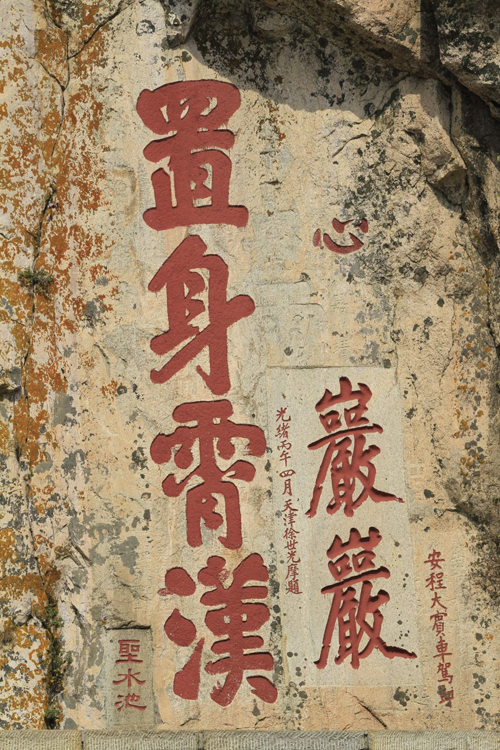 安程大賓車駕
心
巖巖
光緒丙午四月天津徐世光摩題
置身霄漢
聖水池